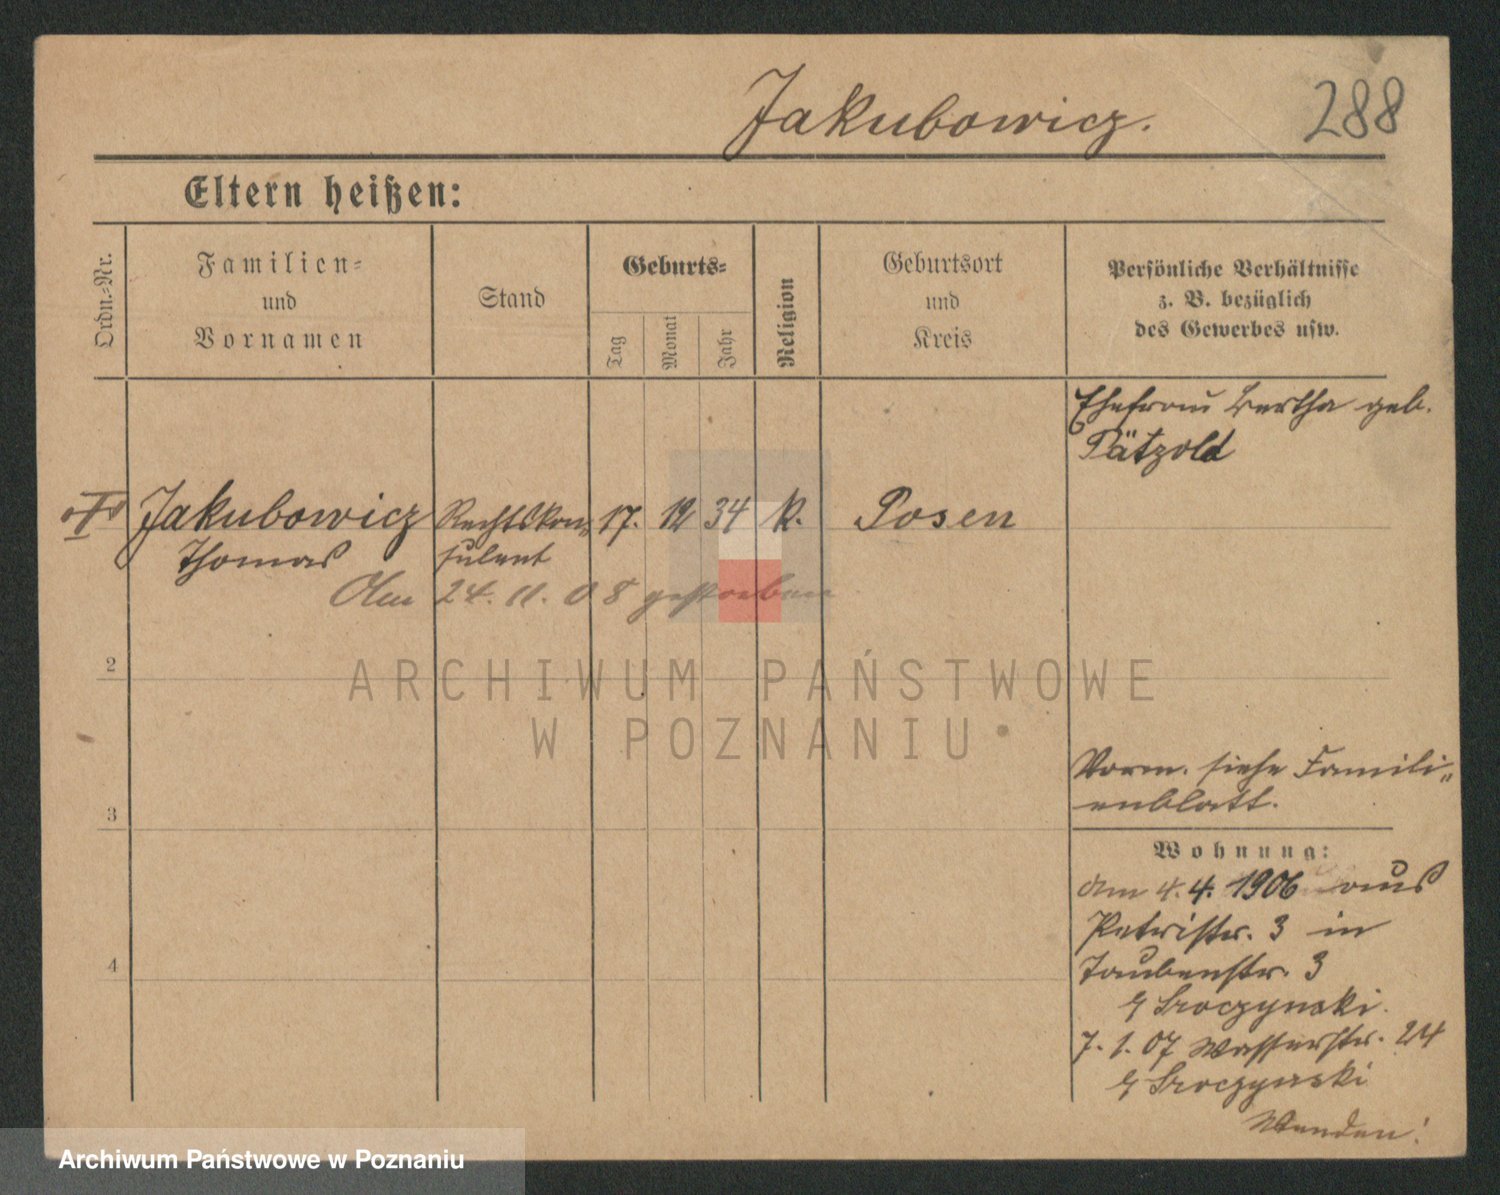 Jakubowicz.
288
Eltern heißen:
Ordn.-Nr.
Familien-
und
Vornamen
Stand
Geburts-
Tag
Monat
Jahr
Religion
Geburtsort
und
Kreis
Persönliche Verhältnisse
z. B. bezüglich
des Gewerbes usw.
Ehefrau Bertha geb.
Pätzold
I Jakubowicz Rechtskon- 17. 12 34 k. Posen
Thomas sulent
Am 24. 11. 08 gestorben
2
ARCHIWUM PAŃSTWOWE
W POZNANIU
Verm. siehe Famili-
enblatt.
3
Wohnung:
am 4. 4. 1906 aus
Petristr. 3 in
Taubenstr. 3
4
Sroczynski.
7. 1. 07 Wasserstr. 24
Sroczynski
Wenden!
Archiwum Państwowe w Poznaniu